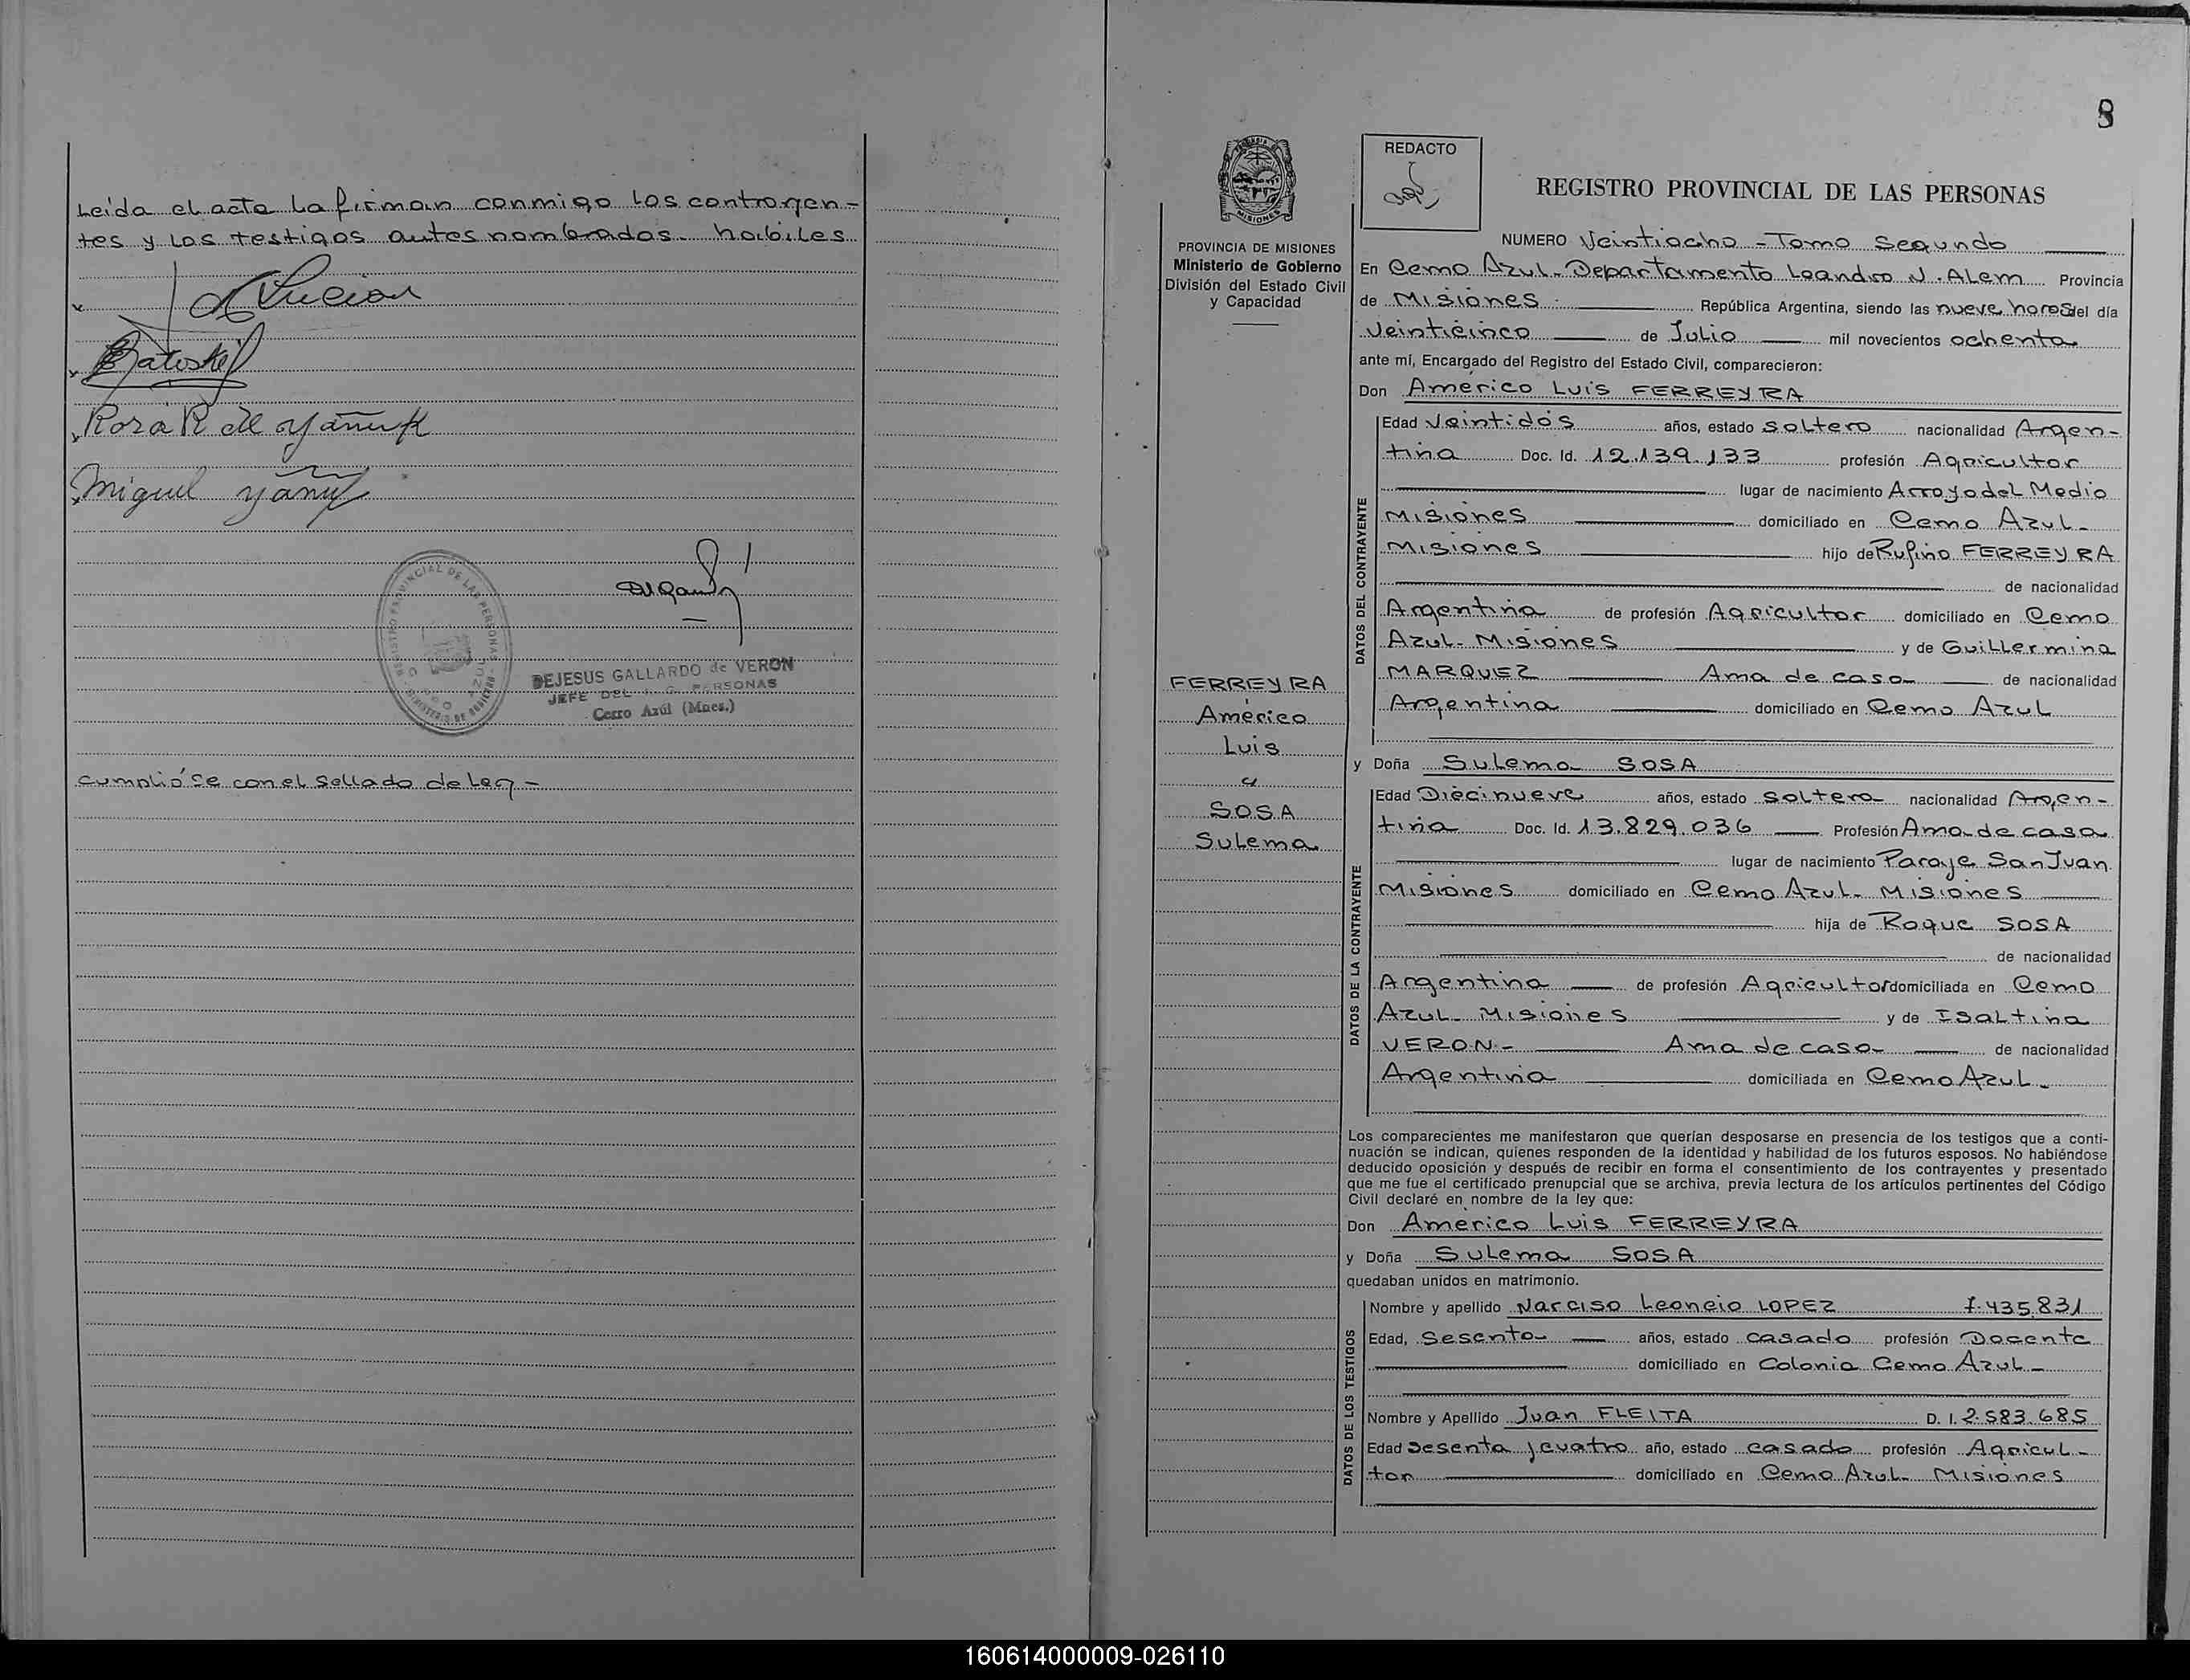 Leida el acta la firman conmigo los contrayen-
tes y los testigos antes nombrados. habiles
Rosa R de Yañuk
Miguel Yañuk
REGISTRO PROVINCIAL DE LAS PERSONAS
DEJESUS GALLARDO de VERON
JEFE DEL PERSONAS
Cerro Azúl (Mnes.)
cumplió se con el sellado de Ley -
8
REDACTO
REGISTRO PROVINCIAL DE LAS PERSONAS
PROVINCIA DE MISIONES
Ministerio de Gobierno
División del Estado Civil
y Capacidad
FERREYRA
Américo
Luis
c/
SOSA
Sulema
NUMERO Veintiocho - Tomo Segundo
En Cerro Azul - Departamento Leandro N. ALem Provincia
de Misiones República Argentina, siendo las nueve horas del día
Veinticinco de Julio mil novecientos ochenta
ante mí, Encargado del Registro del Estado Civil, comparecieron:
Don Américo Luis FERREYRA
DATOS DEL CONTRAYENTE
Edad Veintidós años, estado soltero nacionalidad Argen-
tina Doc. Id. 12.139.133 profesión Agricultor
lugar de nacimiento Arroyo del Medio
Misiones domiciliado en Cerro Azul-
Misiones hijo de Rufino FERREYRA
de nacionalidad
Argentina de profesión Agricultor domiciliado en Cerro
Azul- Misiones y de Guillermina
MARQUEZ Ama de casa de nacionalidad
Argentina domiciliado en Cerro Azul
y Doña Sulema SOSA
DATOS DE LA CONTRAYENTE
Edad Diecinueve años, estado soltera nacionalidad Argen-
tina Doc. Id. 13.829.036 Profesión Ama de casa
lugar de nacimiento Paraje San Juan
Misiones domiciliado en Cerro Azul- Misiones
hija de Roque SOSA
de nacionalidad
Argentina de profesión Agricultor domiciliada en Cerro
Azul- Misiones y de Isaltina
VERON.- Ama de casa de nacionalidad
Argentina domiciliada en Cerro Azul-
Los comparecientes me manifestaron que querían desposarse en presencia de los testigos que a conti-
nuación se indican, quienes responden de la identidad y habilidad de los futuros esposos. No habiéndose
deducido oposición y después de recibir en forma el consentimiento de los contrayentes y presentado
que me fue el certificado prenupcial que se archiva, previa lectura de los artículos pertinentes del Código
Civil declaré en nombre de la ley que:
Don Américo Luis FERREYRA
y Doña Sulema SOSA
quedaban unidos en matrimonio.
DATOS DE LOS TESTIGOS
Nombre y apellido Narciso Leoncio LOPEZ 7.435.831
Edad, Sesenta años, estado casado profesión Docente
domiciliado en Colonia Cerro Azul-
Nombre y Apellido Juan FLEITA D. I. 2.583.685
Edad Sesenta y cuatro año, estado casado profesión Agricul-
tor domiciliado en Cerro Azul- Misiones
160614000009-026110